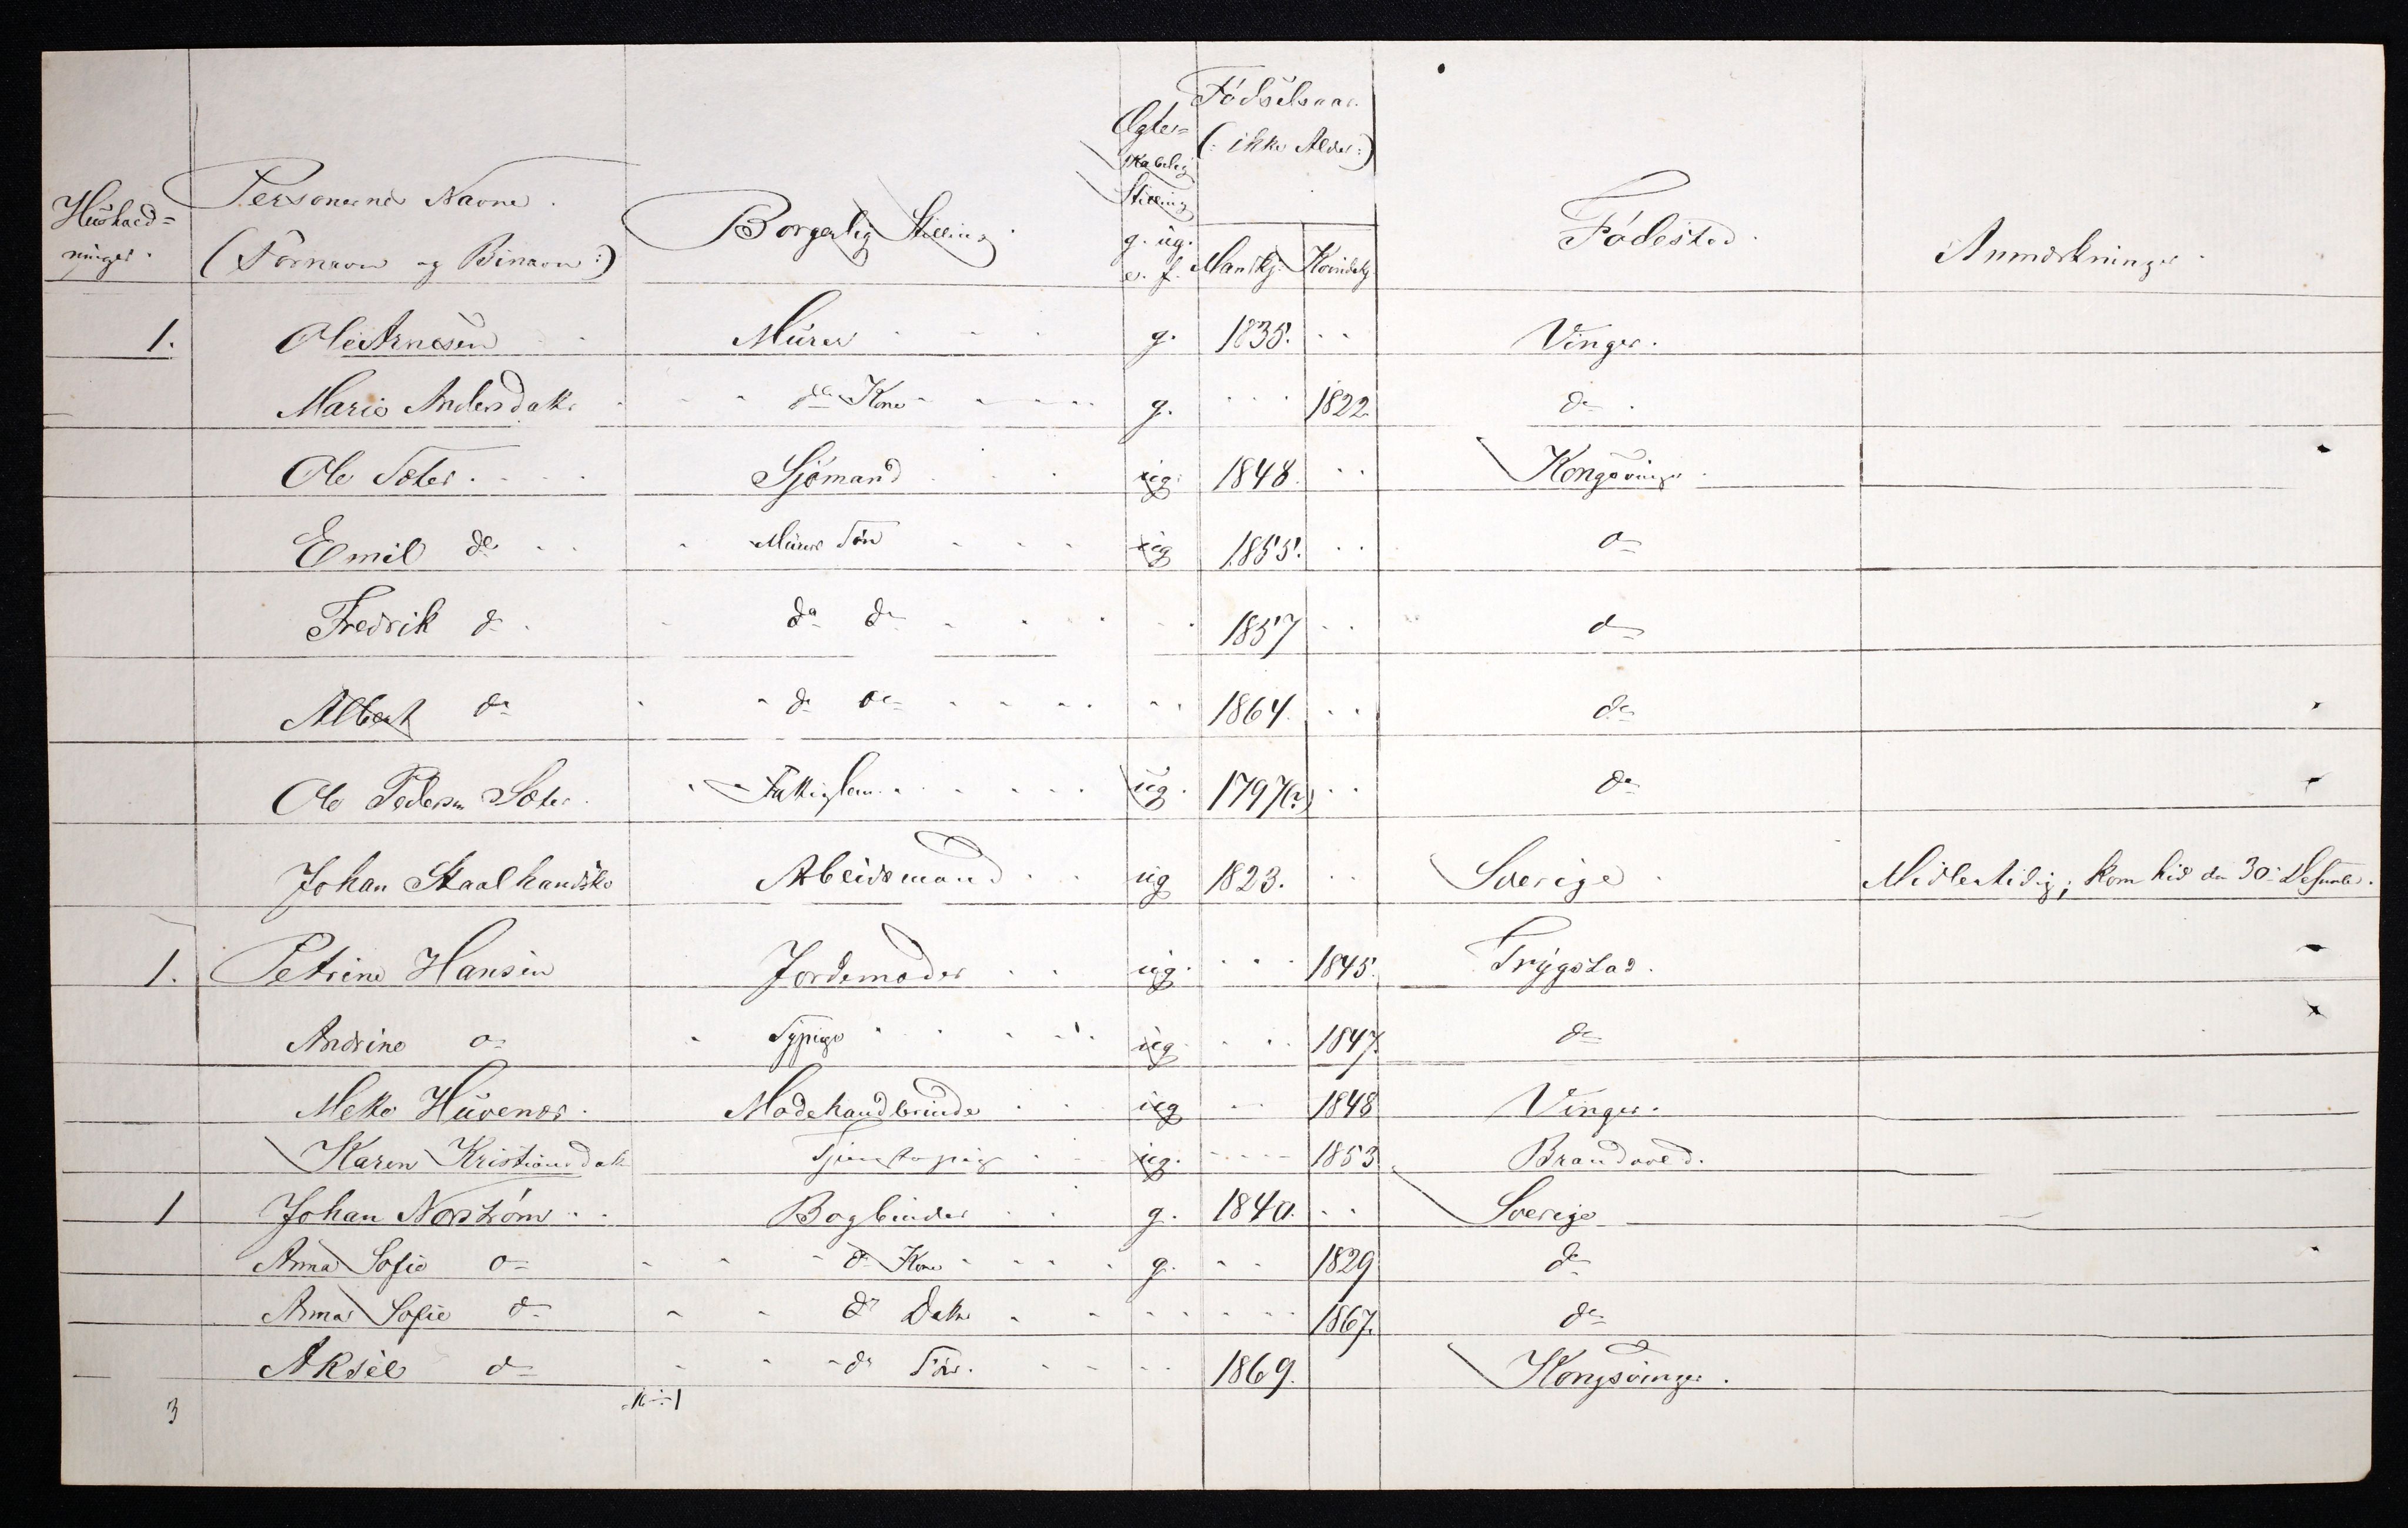 Ægte-
skabelig
Stilling
g. ug.
e. f.
Fødselsaar
(: ikke Alder :)
Mandkj. Kvindekj.
Hushold-
ninger.
Personernes Navne.
(Fornavn og Binavn:)
Borgerlig Stilling.
Fødested.
Anmærkninger.
1. Ole Arnesen Murer g. 1835. Vinger.
Marie Andersdatr do Kone g. 1822 do.
Ole Sæter Sjømand ug. 1848. Kongsvinger.
Emil do Murer Søn ug 1855. do
Fredrik do do do 1857 do
Albert do do do 1864. do
Ole Pedersen Sæter Fattiglem ug. 1797(?) do
Johan Staalhandske Abeidsmand ug 1823. Sverige. Midlertidig; kom hid den 30.
1. Petrine Hansen Jordemoder ug. 1845. Trygstad.
Andrine do Sypige ug. 1847. do
Modehandlerinde ug 1848 Vinger.
Karen Kristiansdatr Tjenestepige ug. 1853 Brandvold.
1 Johan Norström Bogbinder g. 1840. Sverige
Anna Sofie do do Kone g. 1829 do
Anna Sofie do do Datr 1867. do
Aksel do do Søn. 1869. Kongsvinger.
3 16÷1